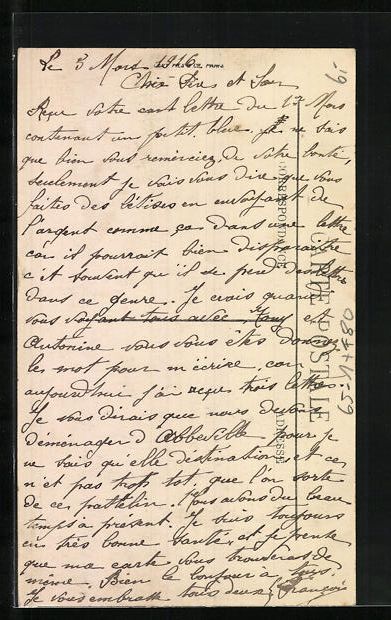 Le 3 Mars 1916
Cher Père et Soeur
Reçu votre carte lettre du 1er Mars
contenant un petit bleu. Je ne sais
que bien vous remerciez de votre bonté,
seulement je vais vous dire que vous
faites des bêtises en envoyant de
l'argent comme ça dans une lettre
car il pourrait bien disparaitre
c'et souvent qu'il se perd des lettres
dans ce genre. Je crois quand
vous et
Antonine vous vous êtes donnés
le mot pour m'écrire car
aujourd'hui j'ai reçu trois lettres.
Je vous dirais que nous devons
déménager d'Abbeville pour je
ne sais qu'elle destination et ce
n'et pas trop tot que l'on sorte
de ce patelin. Nous avons du beau
temps a present. Je suis toujours
en très bonne santé, et je pense
que ma carte vous trouveras de
même. Bien le bonjour à tous.
Je vous embrasse tous deux François
CARTE POSTALE
CORRESPONDANCE
ADRESSE